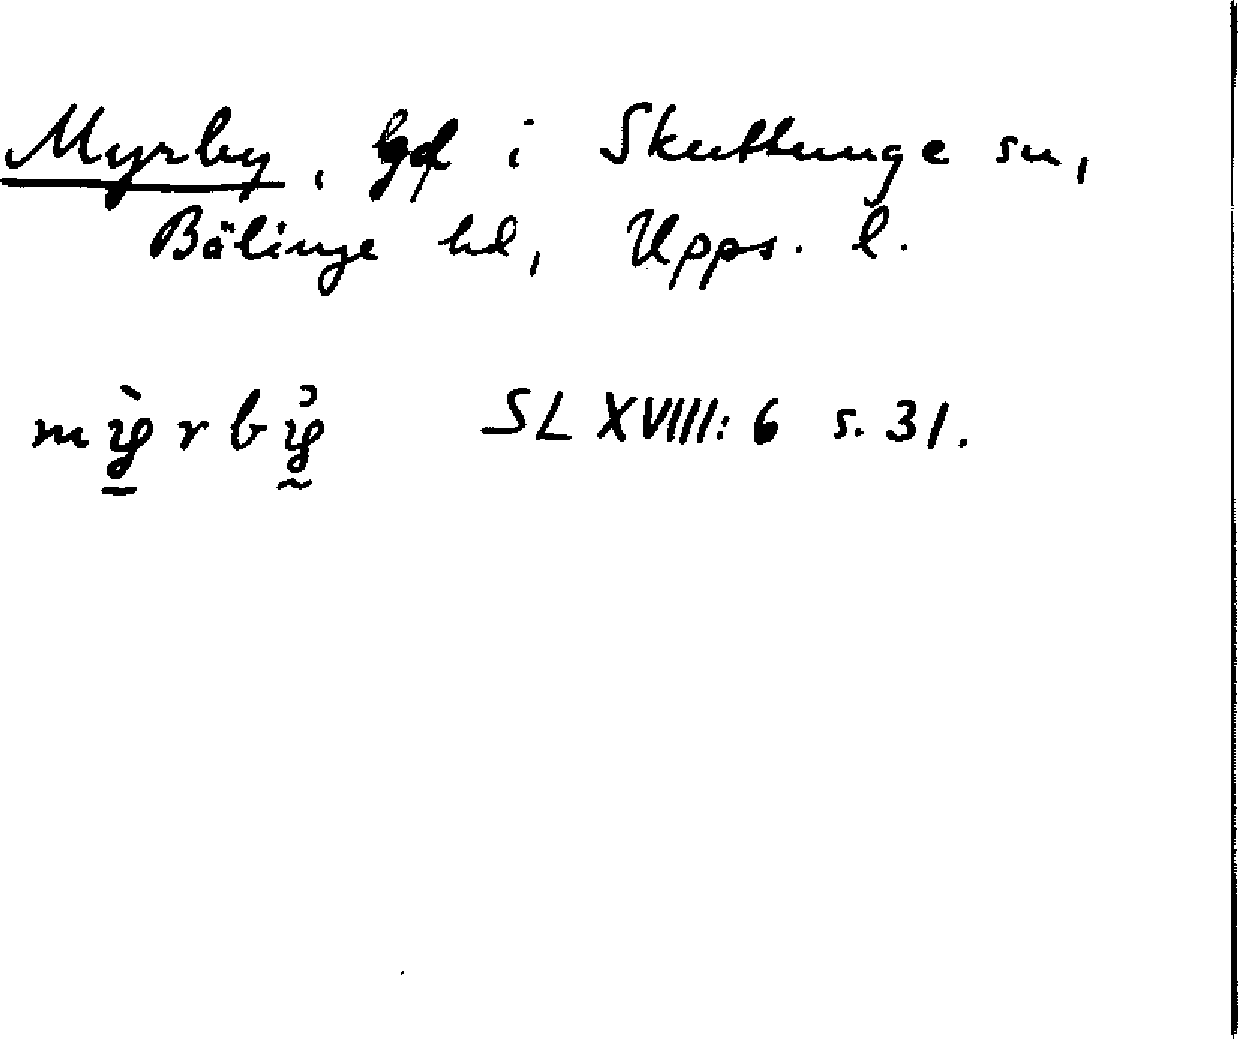 Myrby, i Skuttunge sn,
Bälinge hd, Upps. l.
SL XVIII: 6 s. 31.